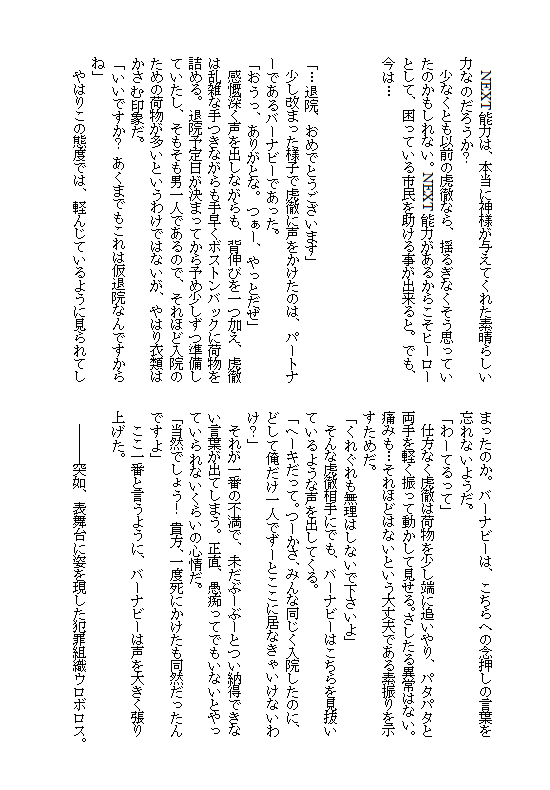 NEXT能力は、本当に神様が与えてくれた素晴らしい
力なのだろうか?
少なくとも以前の虎徹なら、揺るぎなくそう思ってい
たのかもしれない。NEXT能力があるからこそヒーロー
として、困っている市民を助ける事が出来ると。でも、
今は…
「…退院、おめでとうございます」
少し改まった様子で虎徹に声をかけたのは、パートナ
ーであるバーナビーであった。
「おうっ、ありがとな。つぁー、やっとだぜ」
感慨深く声を出しながらも、背伸びを一つ加え、虎徹
は乱雑な手つきながらも手早くボストンバックに荷物を
詰める。退院予定日が決まってから予め少しずつ準備し
ていたし、そもそも男一人であるので、それほど入院の
ための荷物が多いというわけではないが、やはり衣類は
かさむ印象だ。
「いいですか? あくまでもこれは仮退院なんですから
ね」
やはりこの態度では、軽んじているように見られてし
まったのか。バーナビーは、こちらへの念押しの言葉を
忘れないようだ。
「わーてるって」
仕方なく虎徹は荷物を少し端に追いやり、パタパタと
両手を軽く振って動かして見せる。さしたる異常はない。
痛みも…それほどはないという大丈夫である素振りを示
すためだ。
「くれぐれも無理はしないで下さいよ」
そんな虎徹相手にでも、バーナビーはこちらを見抜い
ているような声を出してくる。
「ヘーキだって。つーかさ、みんな同じく入院したのに、
どして俺だけ一人でずーとここに居なきゃいけないわ
け?」
それが一番の不満で、未だぶーぶーとつい納得できな
い言葉が出てしまう。正直、愚痴ってでもいないとやっ
ていられないくらいの心情だ。
「当然でしょう! 貴方、一度死にかけたも同然だったん
ですよ」
ここ一番と言うように、バーナビーは声を大きく張り
上げた。
―――突如、表舞台に姿を現した犯罪組織ウロボロス。